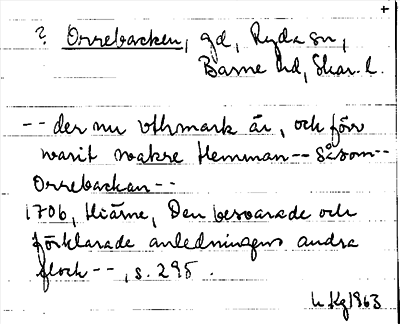 +
? Orrebacken, gd, Ryda sn,
Barne hd, Skar. l.
-- der nu uthmark är, och förr
warit wakre Hemman -- Såsom --
Orrebackan --
1706, Hiärne, Den beswarade och
förklarade anledningens andra
flock --, s. 295.
L. Kg 1963